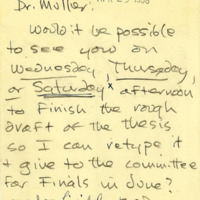 Dr. Muller:
would it be possible
to see you on
Wednesday, Thursday,
or Saturday x afternoon
to finish the rough
draft of the thesis
so I can retype it
+ give to the committee
for Finals in June?